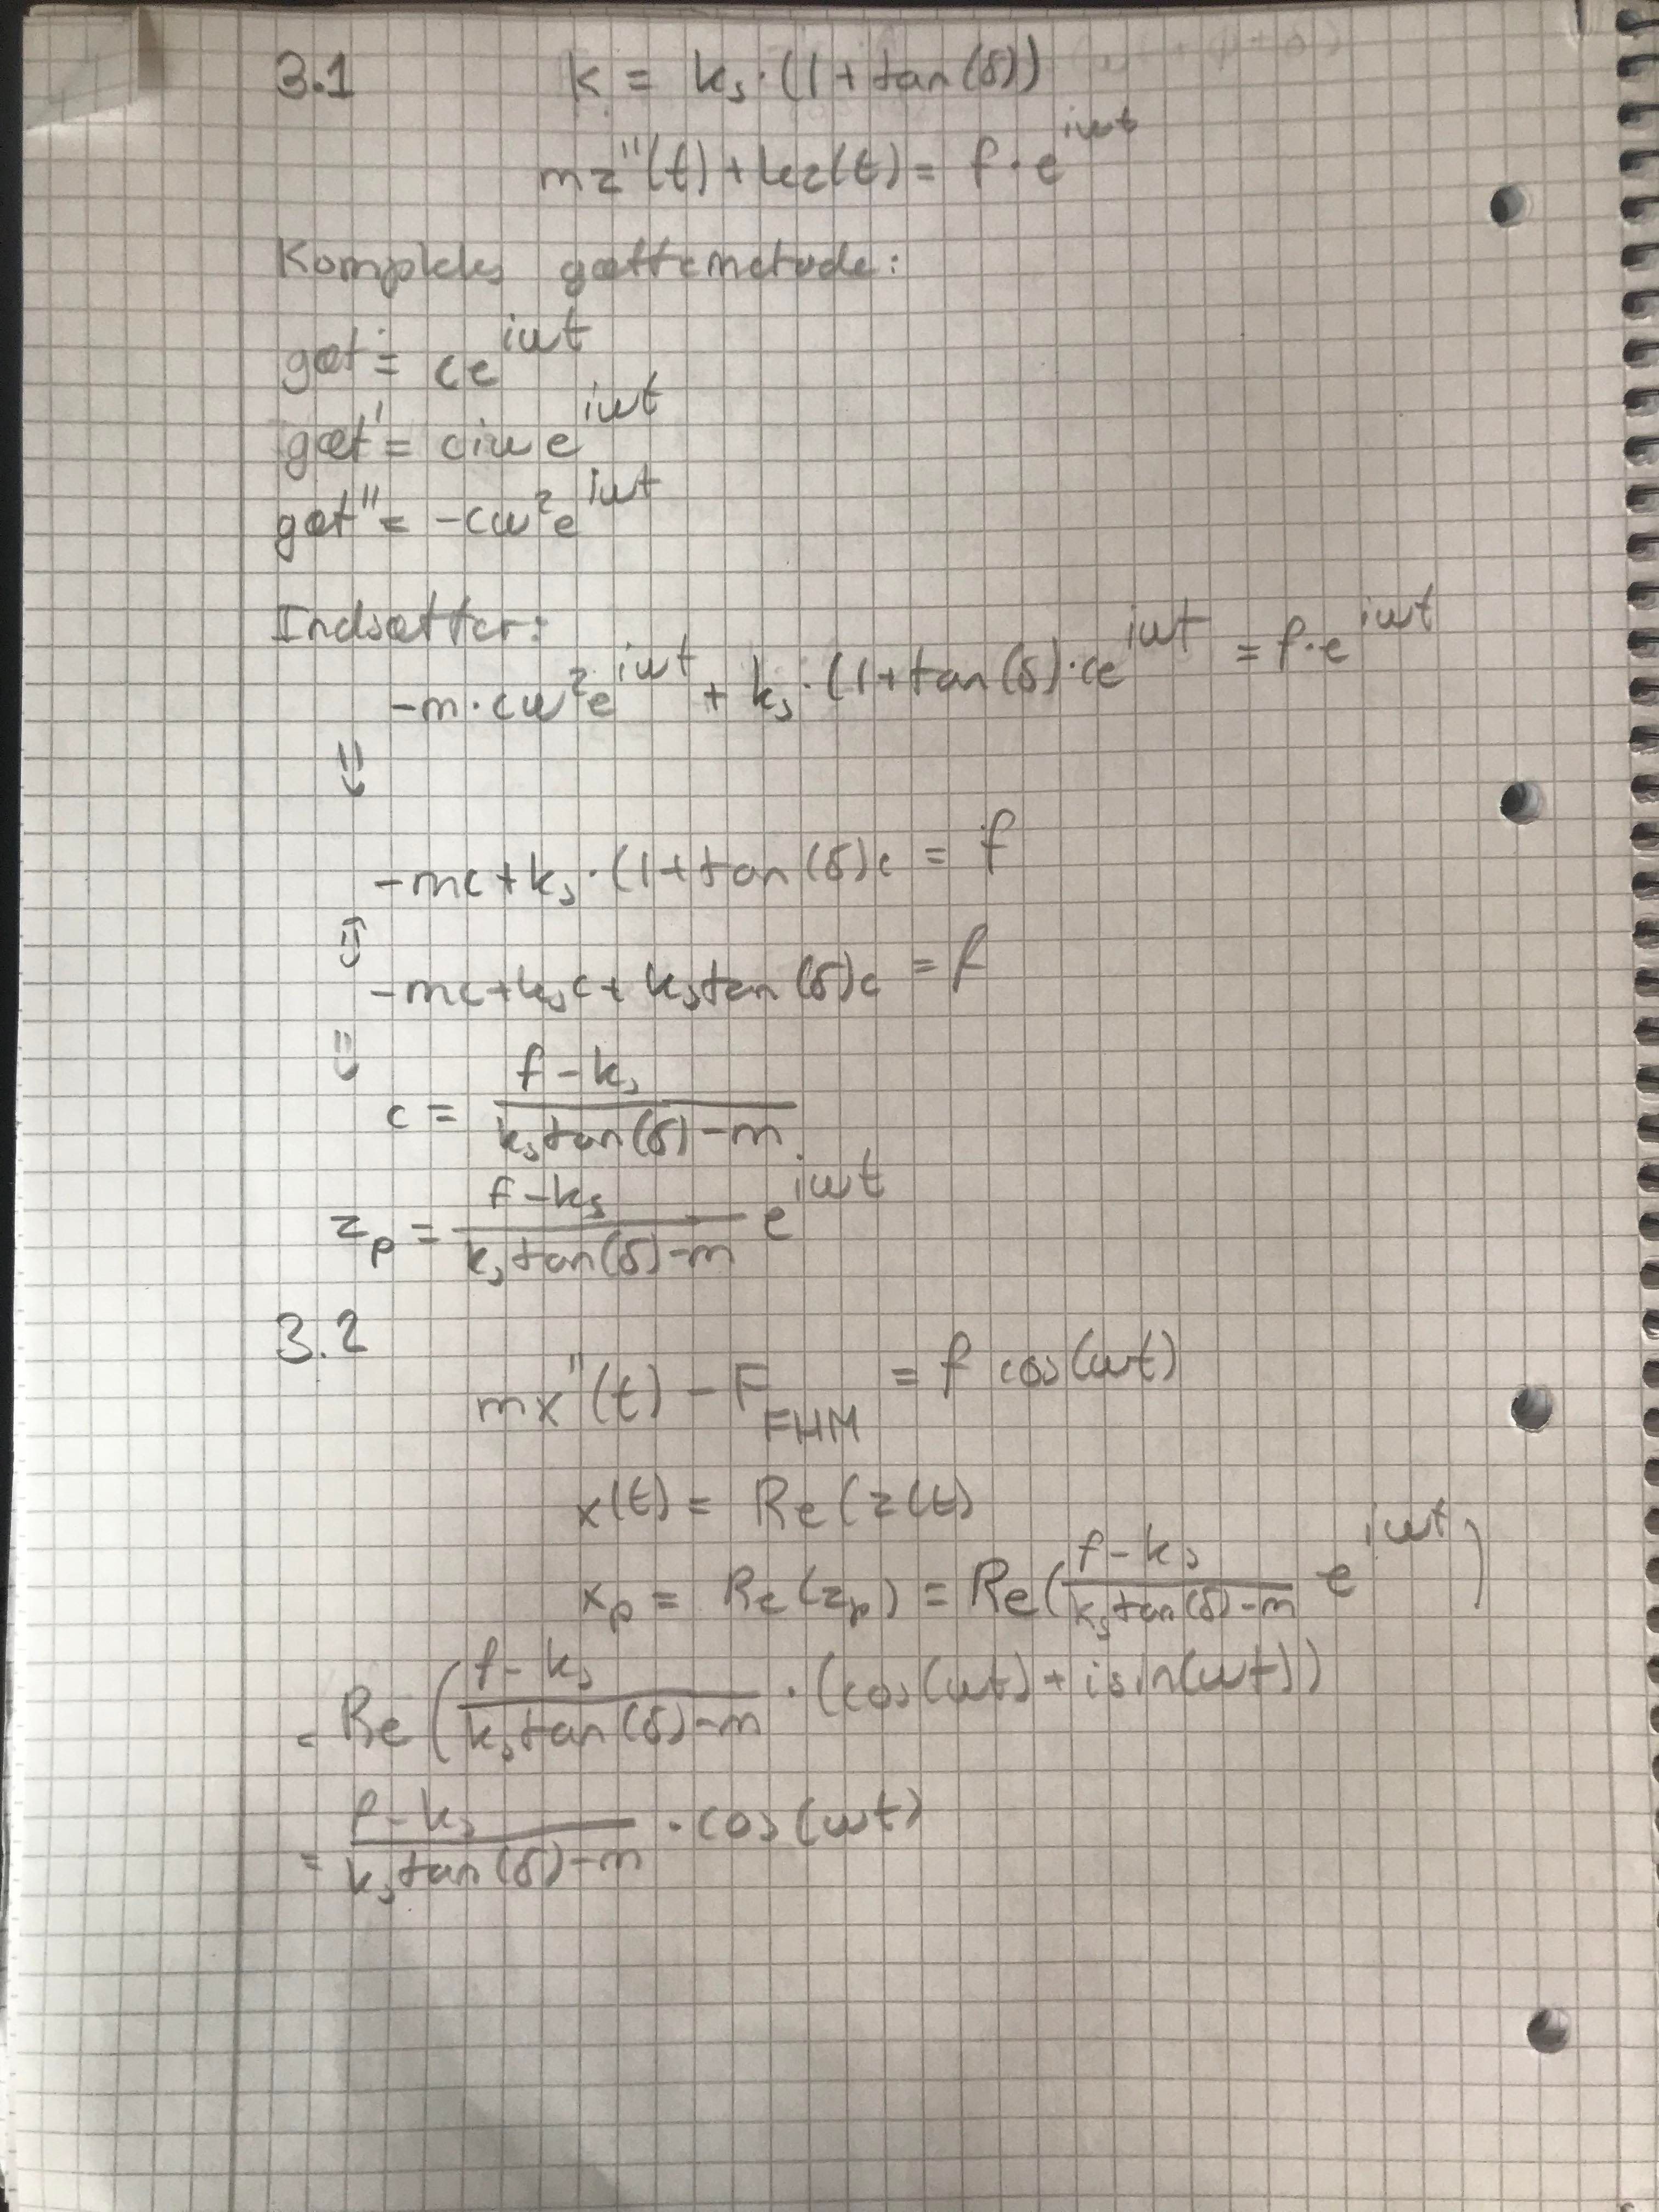 3.1 k = ks·(1+tan(δ))
mz''(t)+kz(t) = f·e^iωt
Kompleks gættemetode:
gæt = ce^iωt
gæt' = ciωe^iωt
gæt'' = -cω²e^iωt
Indsætter:
-m·cω²e^iωt + ks·(1+tan(δ)·ce^iωt = f·e^iωt
⇓
-mc+ks·(1+tan(δ)c = f
⇕
-mc+ksc+kstan(δ)c = f
⇓
c = (f-ks)/(kstan(δ)-m)
zp = (f-ks)/(kstan(δ)-m) e^iωt
3.2
mx''(t) - F_FHM = f cos(ωt)
x(t) = Re(z(t)
xp = Re(zp) = Re((f-ks)/(kstan(δ)-m) e^iωt)
= Re((f-ks)/(kstan(δ)-m) · (cos(ωt)+isin(ωt))
= (f-ks)/(kstan(δ)-m) · cos(ωt)